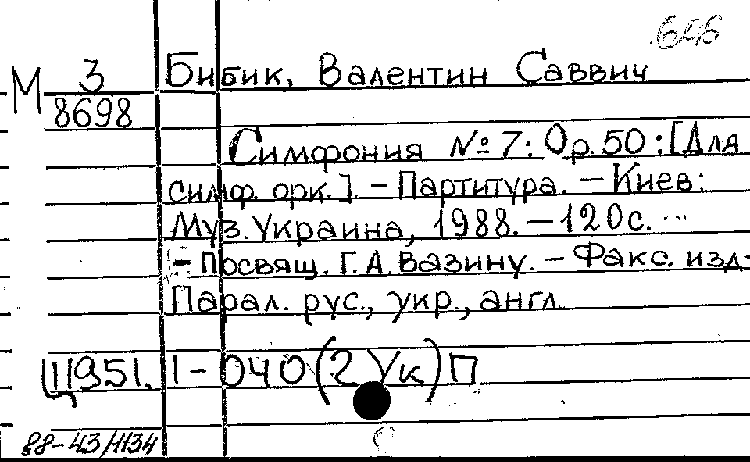 606
М 3/8698 Бибик, Валентин Саввич
Симфония № 7: Ор. 50: [Для
симф. орк.]. – Партитура. – Киев:
Муз. Украина, 1988. – 120 с. ...
– Посвящ. Г. А. Вазину. – Факс. изд.
Парал. рус., укр., англ.
Щ951.1-040(2Ук)П
88-43/1134